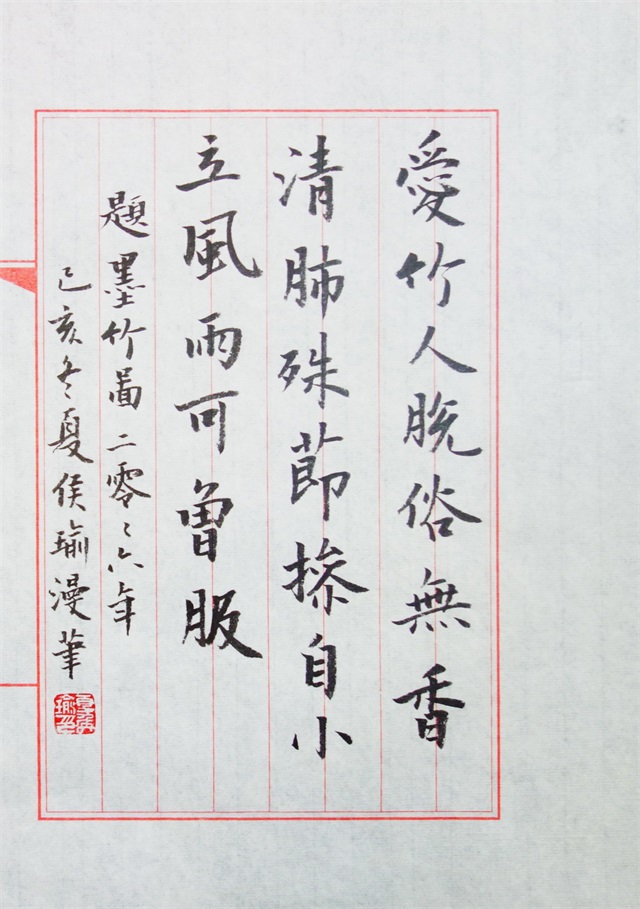 愛竹人脱俗無香
清肺殊節操自小
立風雨可曾服
題墨竹圖二零〻六年
己亥冬夏侯瑜漫筆